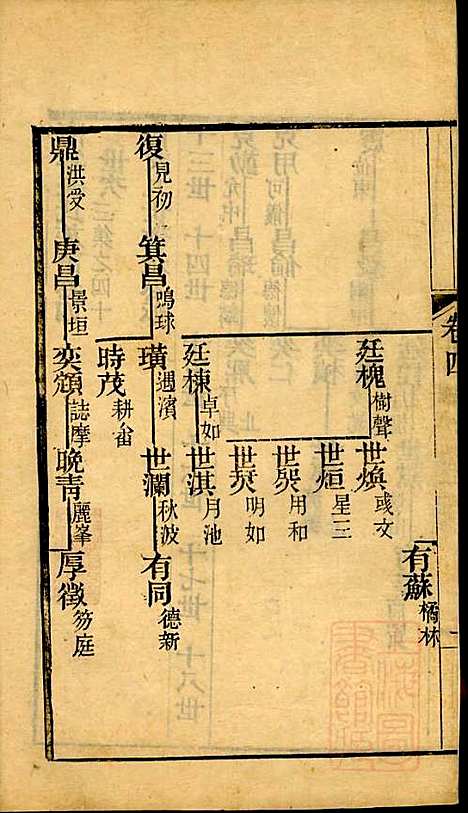 卷四
有蘇 橘林
廷槐 樹聲 世煥 彧文
世烜 星三
世煛 用和
世焸 明如
廷棟 卓如 世淇 月池
復 見初 箕昌 鳴球 璜 遇濱 世瀾 秋波 有同 德新
時茂 耕畬
鼎 洪受 庚昌 景垣 奕顏 誌摩 晩青 麗峯 厚徵 笏庭